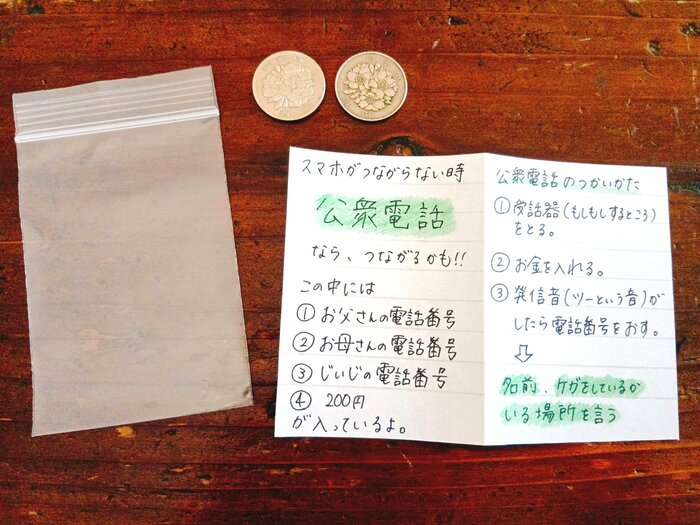 スマホがつながらない時
公衆電話
なら、つながるかも!!
この中には
① お父さんの電話番号
② お母さんの電話番号
③ じぃじの電話番号
④ 200円
が入っているよ。
公衆電話のつかいかた
① 受話器(もしもしするところ)
をとる。
② お金を入れる。
③ 発信音(ツーという音)が
したら電話番号をおす。
⇩
名前、ケガをしているか
いる場所を言う